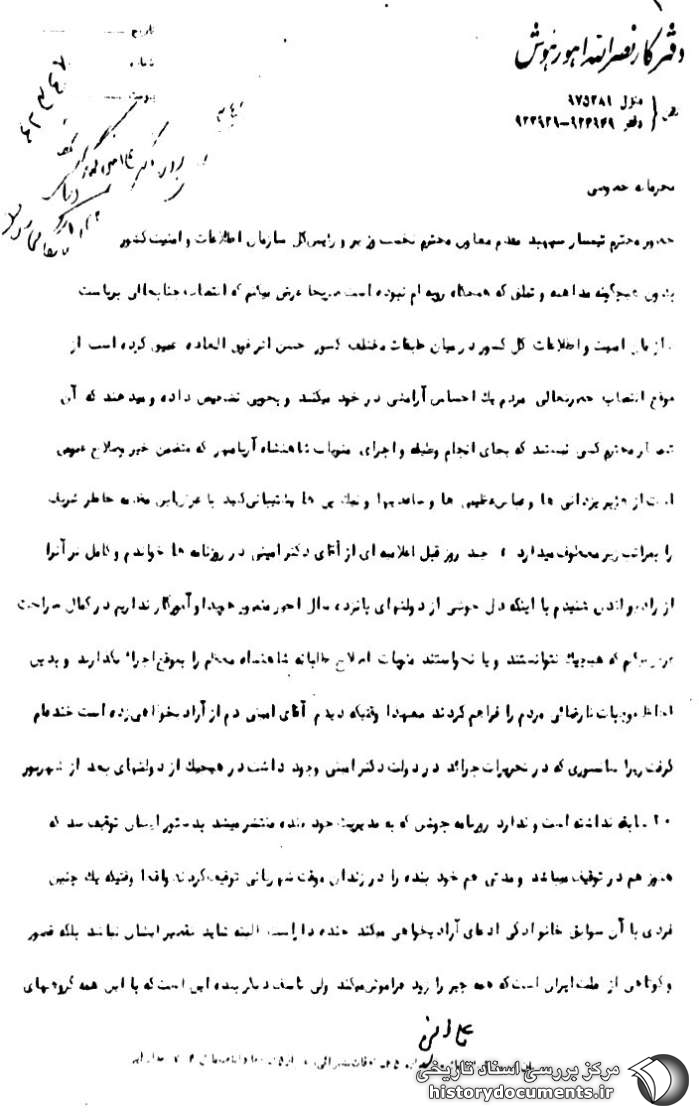 دفتر کار نصراله اهورهوش
تاریخ
شماره
پیوست
تلفن منزل ۹۷۵۲۸۹
دفتر ۹۲۳۹۴۹-۹۲۳۹۲۹
محرمانه خصوصی
حضور محترم تیمسار سپهبد مقدم معاون محترم نخست وزیر و رئیس کل سازمان اطلاعات و امنیت کشور
بدون هیچگونه مداهنه و تملق که هیچگاه رویه ام نبوده است صریحا عرض میکنم که انتصاب جنابعالی بریاست
سازمان امنیت و اطلاعات کل کشور در میان طبقات مختلف کشور حسن اثر فوق العاده عمیق کرده است از
موقع انتصاب حضرتعالی مردم یک احساس آرامشی در خود میکنند و بخوبی تشخیص داده و میدهند که آن
تیمسار محترم کسی نیستند که بجای انجام وظیفه و اجرای منویات شاهنشاه آریامهر که متضمن خیر و صلاح عمومی
است از هژبر یزدانی ها و عباس عظیمی ها و ساعدیها و نیک پی ها پشتیبانی کنید با عرض این مقدمه خاطر شریف
را بمراتب زیر معطوف میدارد چند روز قبل اعلامیه ای از آقای دکتر امینی در روزنامه ها خواندم و کامل تر آنرا
از رادیو لندن شنیدم با اینکه دل خوشی از دولتهای پانزده سال اخیر منصور هویدا و آموزگار نداریم در کمال صراحت
عرض میکنم که هیچیک نتوانستند و یا نخواستند منویات اصلاح طلبانه شاهنشاه معظم را بموقع اجراء بگذارند و بدین
لحاظ موجبات نارضائی مردم را فراهم کردند معهذا وقتیکه دیدم آقای امینی دم از آزادیخواهی زده است خنده ام
گرفت زیرا سانسوری که در تحریرات جرائد در دولت دکتر امینی وجود داشت در هیچیک از دولتهای بعد از شهریور
۲۰ سابقه نداشته است و ندارد روزنامه جوشن که به مدیریت خود بنده منتشر میشد بدستور ایشان توقیف شد که
هنوز هم در توقیف میباشد و مدتی هم خود بنده را در زندان موقت شهربانی توقیف کردند واقعا وقتیکه یک چنین
فردی با آن سوابق خانوادگی ادعای آزادیخواهی میکند خنده دار است البته شاید تقصیر ایشان نباشد بلکه قصور
و کوتاهی از ملت ایران است که همه چیز را زود فراموش میکند ولی تاسف دیگر بنده این است که با این همه گروههای
مرکز بررسی اسناد تاریخی
historydocuments.ir